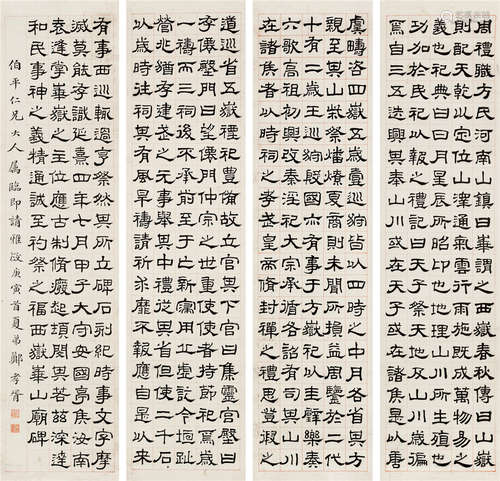 周禮職方氏河南山鎮曰華謂之西嶽春秋傳曰山嶽
則配天乾坤定位山澤通氣雲行雨施既成萬物易之
義也祀典曰日月星辰所昭卬也地理山川所生殖也
功加於民祀以報之禮記曰天子祭天地及山川歲徧
焉自三五迭興其奉山川或在天子或在諸侯是以唐
虞疇咨四嶽五歲壹巡狩皆以四時之中月各省其方
親至其山柴祭燔燎夏商則未聞所損益周鑒於二代
十有二歲王巡狩殷國亦有事于方嶽祀以圭璧樂奏
六歌高祖初興改秦淫祀大宗承循各詔有司其山川
在諸侯者以時祠之孝武皇帝脩封禪之禮思登假之
道巡省五嶽禋祀豐備故立宮其下宮曰集靈宮壂曰
存僊壂門曰望僊門仲宗之世重使使者持節祀焉歲
一禱而三祠後不承前至于亡新寖用丘虛訖今垣趾
營兆猶存建武之元事舉其中禮從其省但使二千石
以歲時往祠其有風旱禱請祈求靡不報應自是以來
有事西巡輒過亨祭然其所立碑石刻紀時事文字摩
滅莫能存識延熹四年七月甲子農大守安國亭侯汝南
袁逢掌華嶽之主位應古制脩廢起頓閔其若茲深達
和民事神之義精通誠至礿祭之福西嶽華山廟碑
伯平仁兄大人屬臨即請雅政庚寅首夏弟鄭孝胥